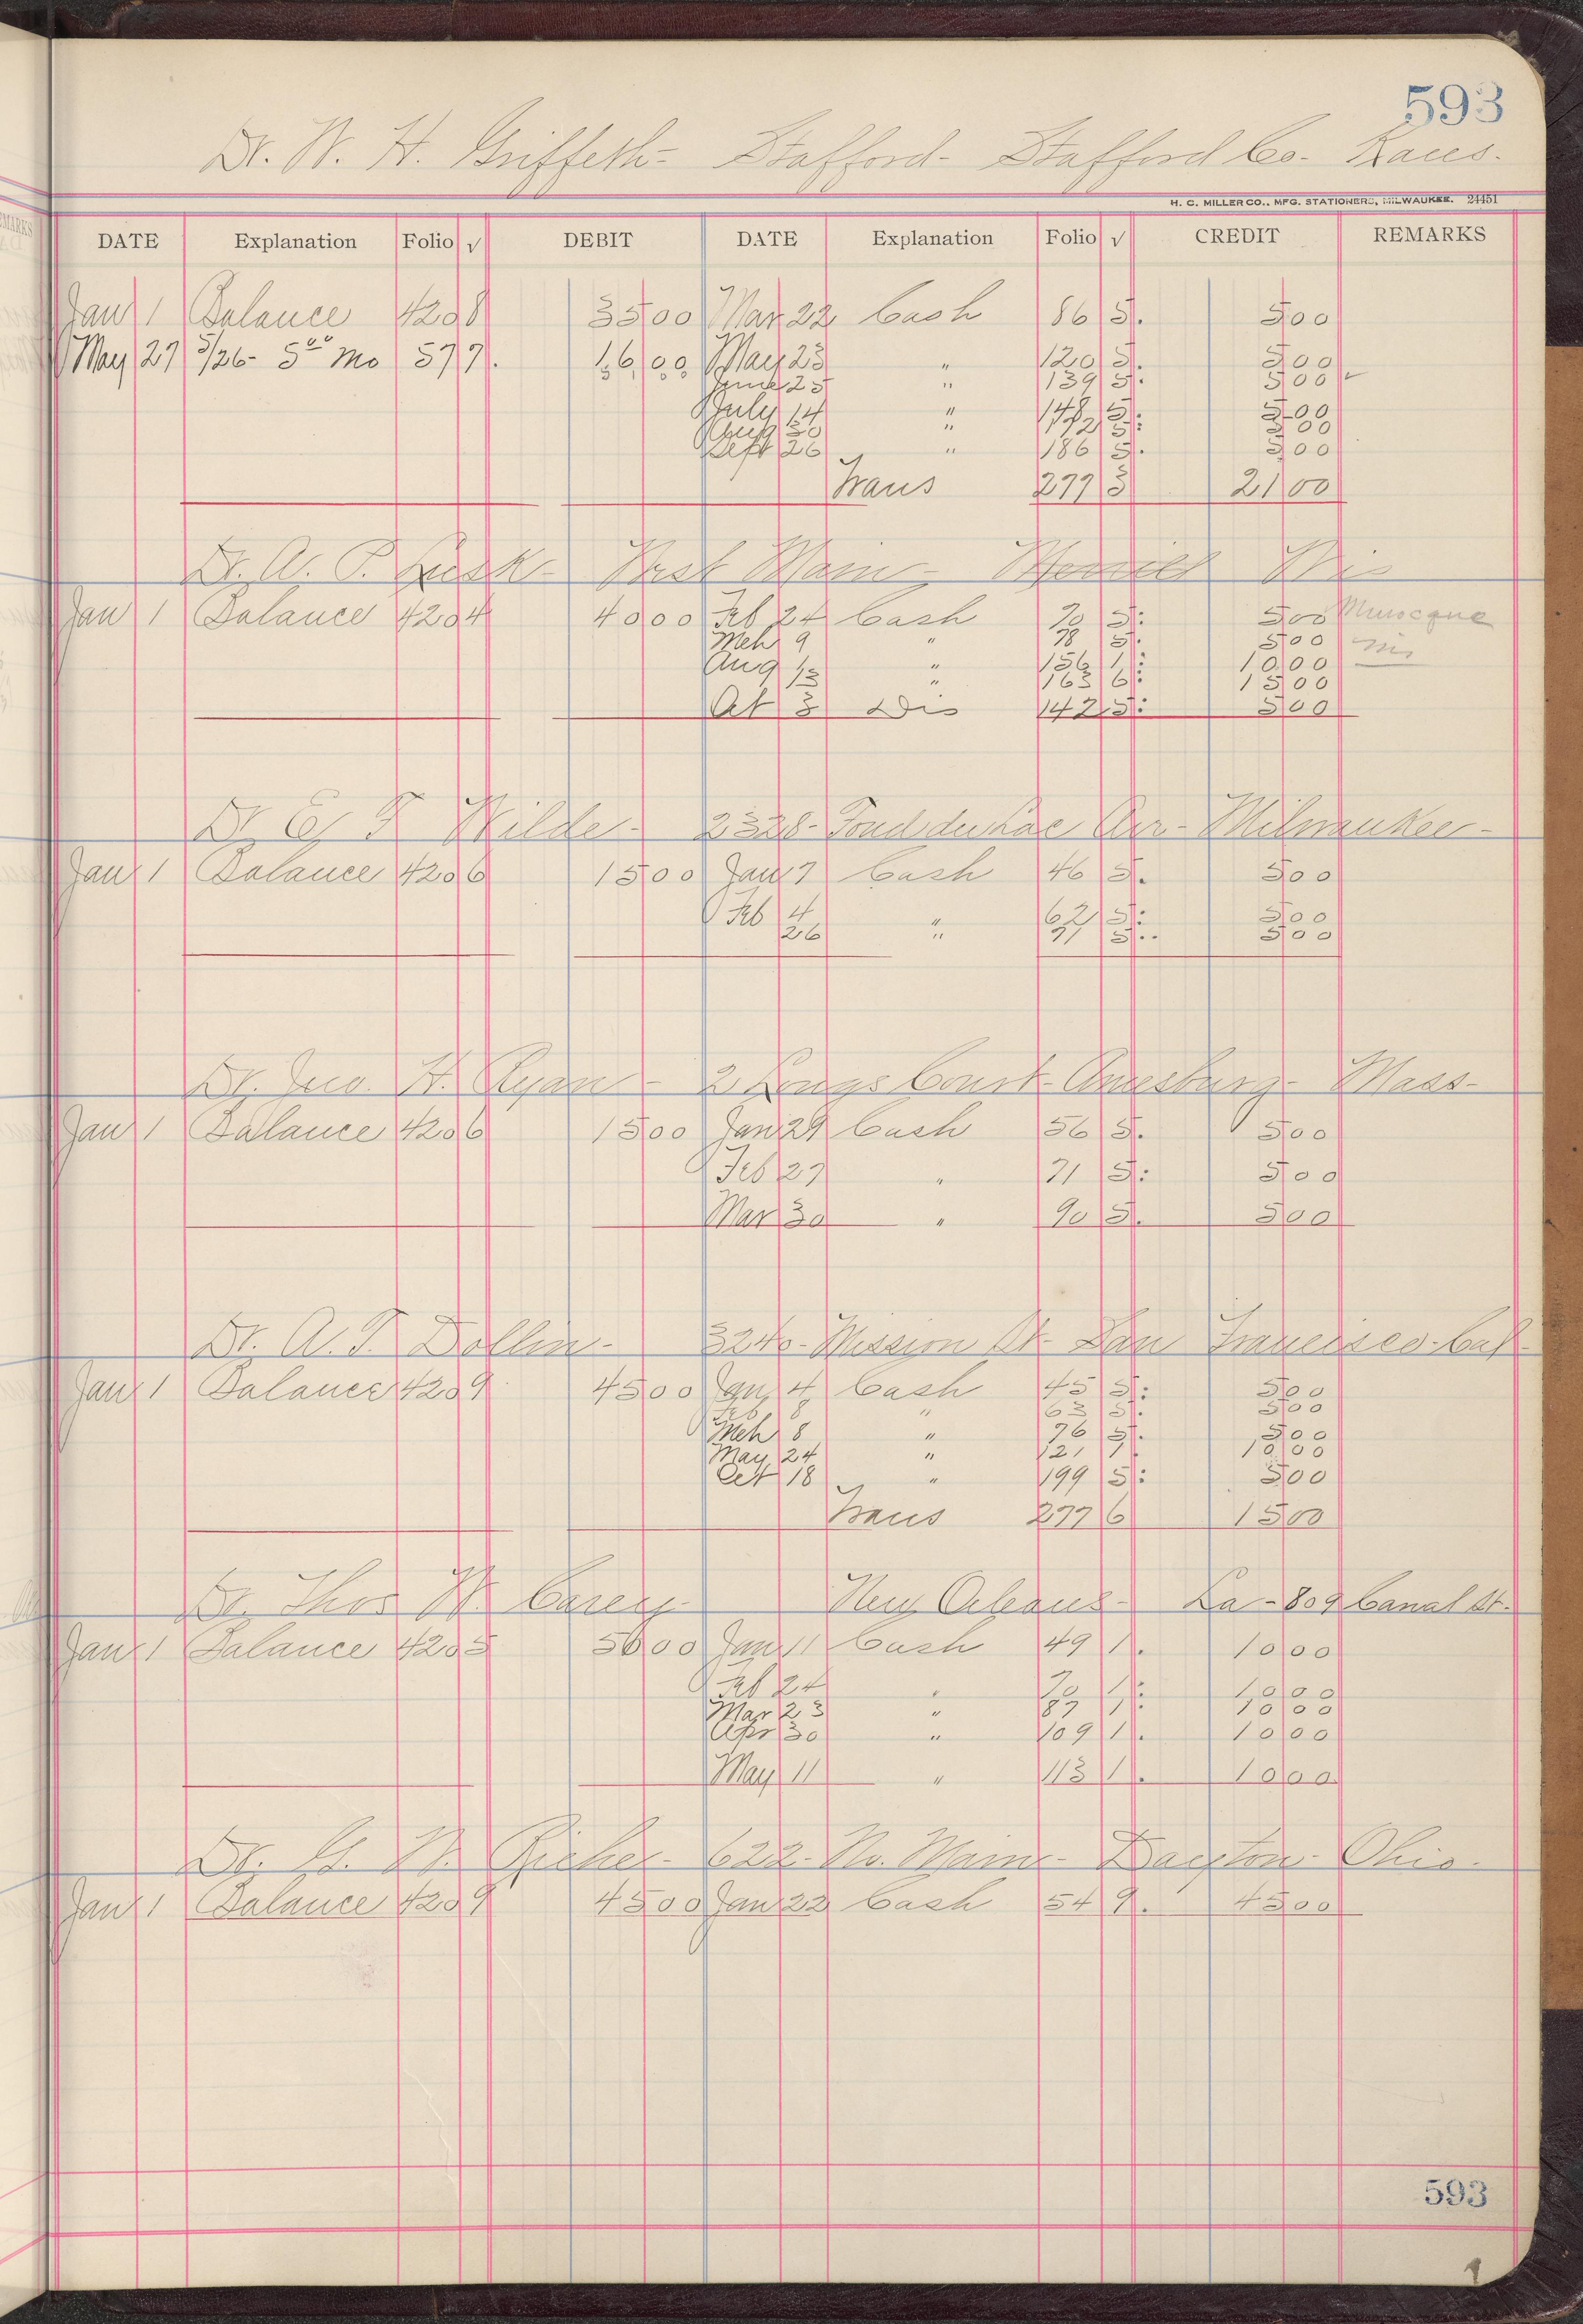 593
Dr. W. H. Griffeth- Stafford- Stafford Co- Kans.
H. C. MILLER CO., MFG. STATIONERS, MILWAUKEE. 24451
DATE Explanation Folio √ DEBIT DATE Explanation Folio √ CREDIT REMARKS
Jan 1 Balance 420 8 35 00 Mar 22 Cash 86 5. 5 00
May 27 5/26- 5 00 mo 57 7. 16 00 May 23 " 120 5. 5 00
June 25 " 139 5. 5 00 ✓
July 14 " 148 5. 5 00
Aug 30 " 172 5: 5 00
Sept 26 " 186 5. 5 00
Trans 277 3 21 00
Dr. A. P. Lusk- West Main- Wis
Jan 1 Balance 420 4 40 00 Feb 24 Cash 70 5: 5 00
Mch 9 " 78 5. 5 00 Wis
Aug 1 " 156 1: 10 00
13 " 163 6: 15 00
Oct 3 Dis 142 5: 5 00
Dr E F Wilde- 2328- Fond du Lac Ave- Milwaukee-
Jan 1 Balance 420 6 15 00 Jan 7 Cash 46 5. 5 00
Feb 4 " 62 5: 5 00
26 " 71 5.. 5 00
Dr. Jno. H. Ryan- 2 Longs Court- Amesbury- Mass-
Jan 1 Balance 420 6 15 00 Jan 29 Cash 56 5. 5 00
Feb 27 " 71 5: 5 00
Mar 30 " 90 5. 5 00
Dr. A. T. Dollin- 3240- Mission St- San Francisco- Cal-
Jan 1 Balance 420 9 45 00 Jan 4 Cash 45 5: 5 00
Feb 8 " 63 5. 5 00
Mch 8 " 76 5. 5 00
May 24 " 121 1. 10 00
Oct 18 " 199 5: 5 00
Trans 277 6 15 00
Dr. Thos W. Carey- New Orleans- La- 809 Canal St.
Jan 1 Balance 420 5 50 00 Jan 11 Cash 49 1. 10 00
Feb 24 " 70 1: 10 00
Mar 23 " 87 1: 10 00
Apr 30 " 109 1. 10 00
May 11 " 113 1. 10 00
Dr. G. W. Richer- 622- No. Main- Dayton- Ohio-
Jan 1 Balance 420 9 45 00 Jan 22 Cash 54 9. 45 00
593
1